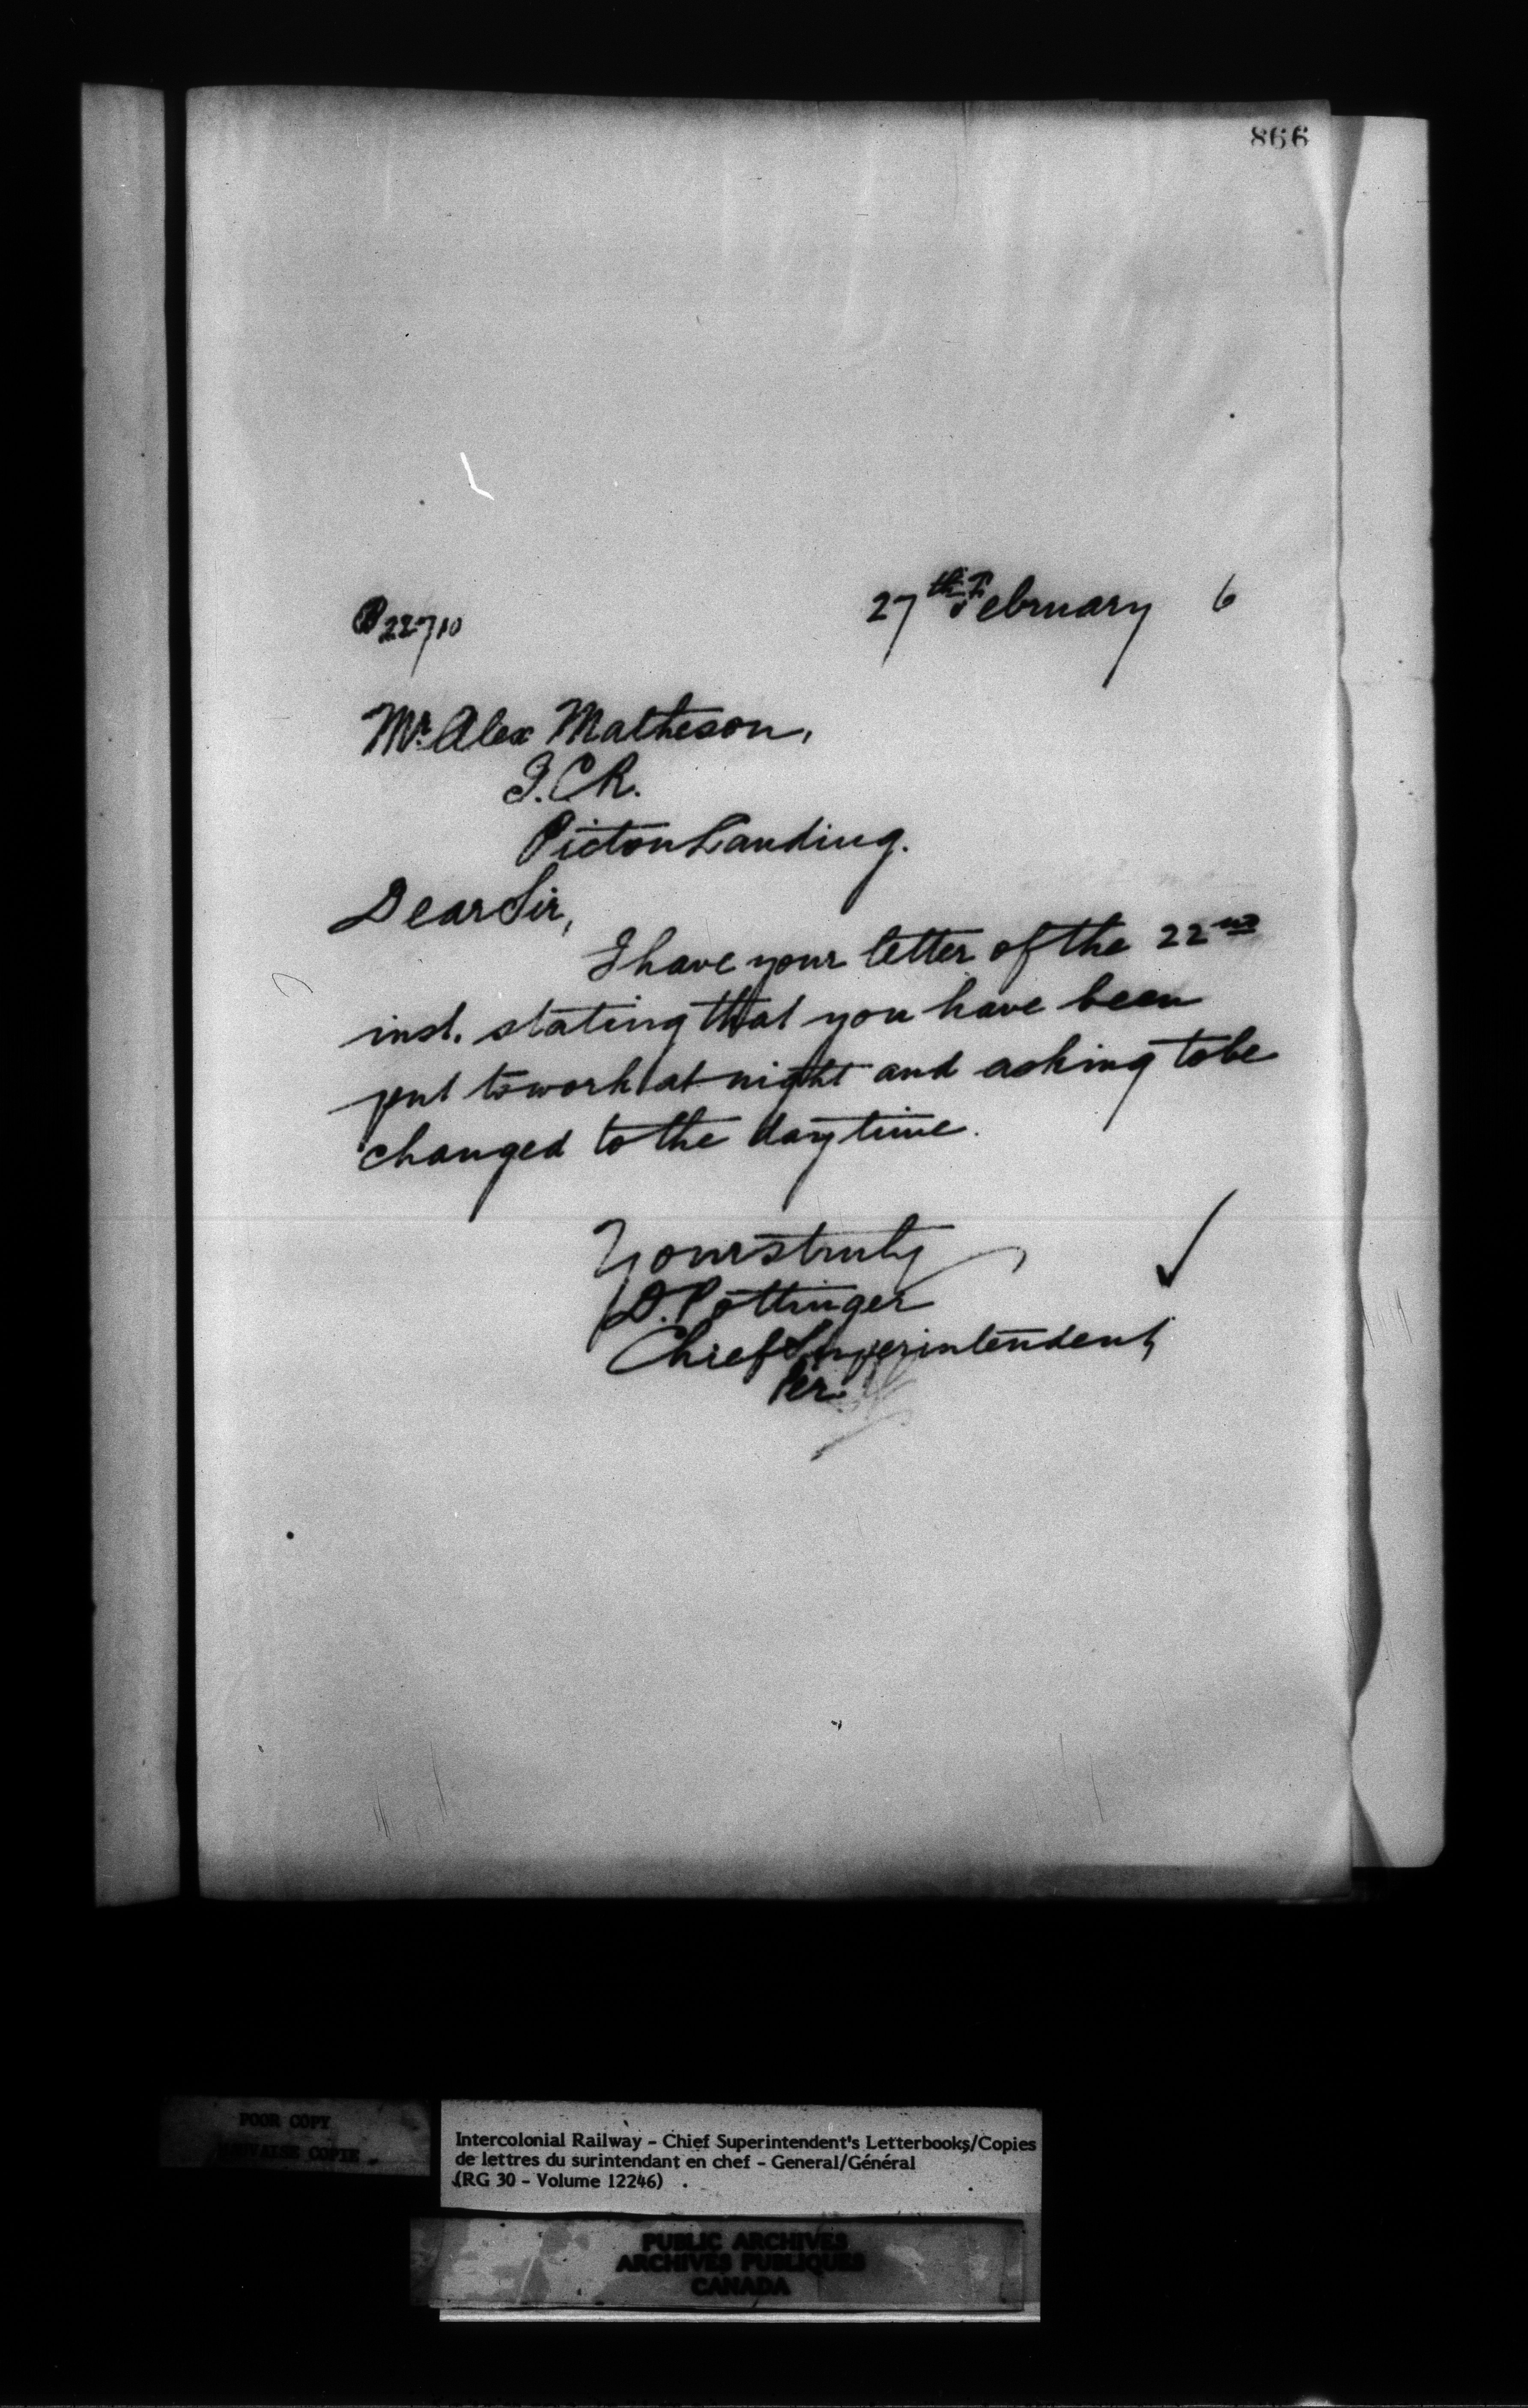 866
27th February 6
B22710
Mr. Alex Matheson,
I.C.R.
Pictou Landing.
Dear Sir,
I have your letter of the 22nd
inst. stating that you have been
put to work at night and asking to be
changed to the day time.
Yours truly
D. Pottinger
Chief Superintendent
Per
POOR COPY
MAUVAISE COPIE
Intercolonial Railway - Chief Superintendent's Letterbooks/Copies
de lettres du surintendant en chef - General/Général
(RG 30 - Volume 12246)
PUBLIC ARCHIVES
ARCHIVES PUBLIQUES
CANADA